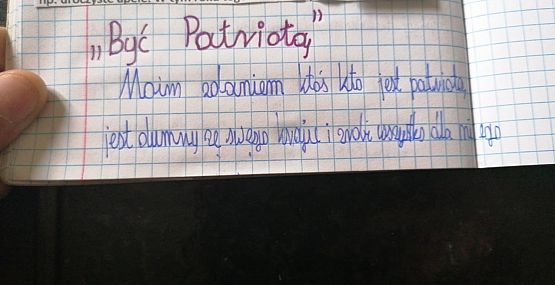 np. uroczyste apele. W tym roku
„Być Patriotą"
Moim zdaniem ktoś kto jest patriotą,
jest dumny ze swego kraju i zrobi wszystko dla niego